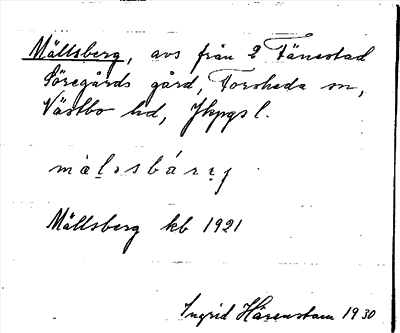 Mällsberg, avs från 2 Tånestad
Söregårds gård, Forsheda sn,
Västbo hd, Jkpgs l.
Mällsberg kb 1921
Ingrid Härenstam 1930